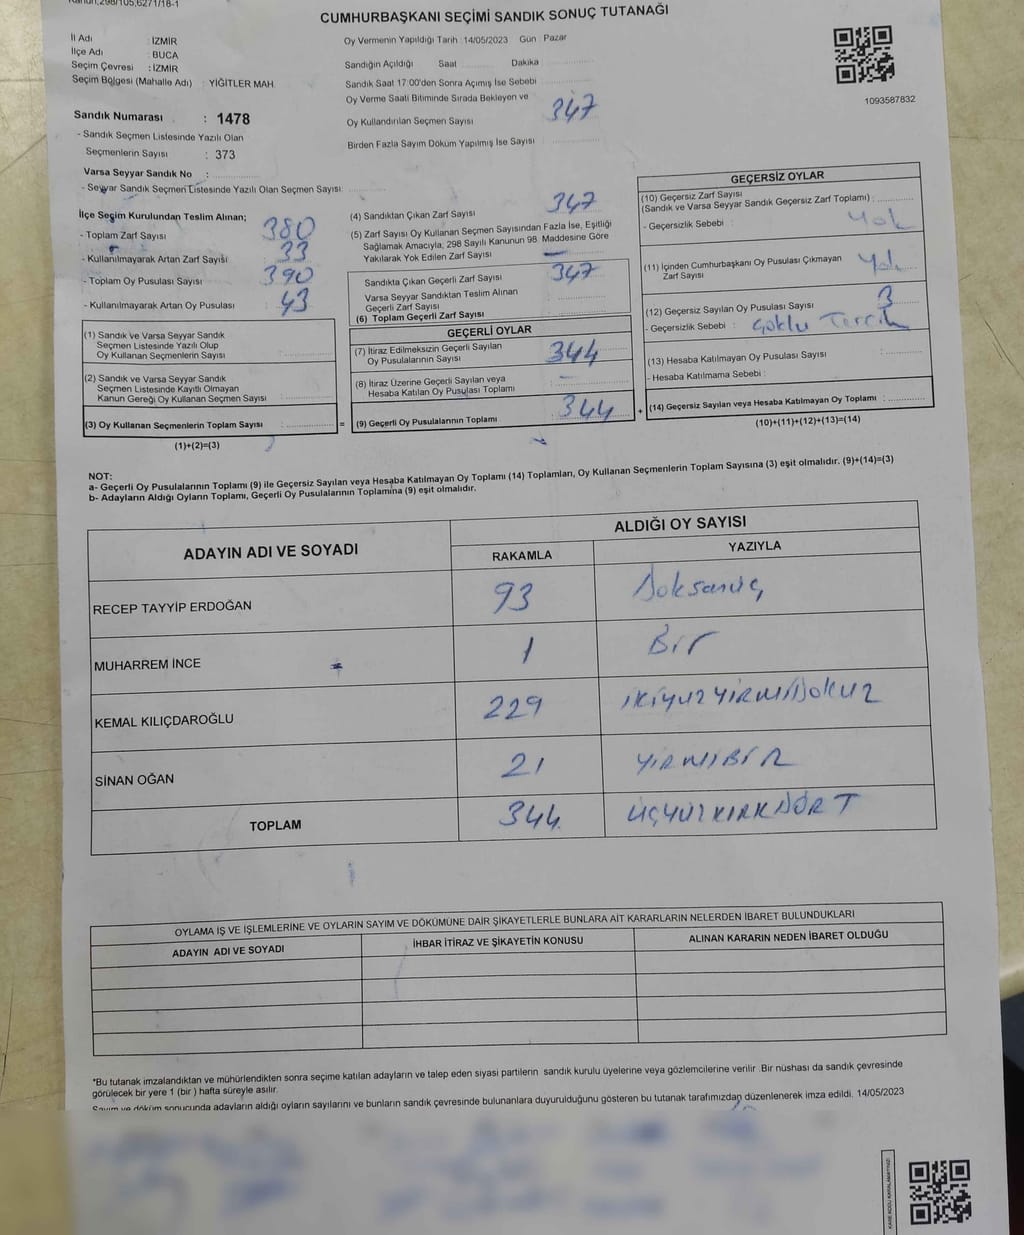 Kanun,298/105,6271/18-1
CUMHURBAŞKANI SEÇİMİ SANDIK SONUÇ TUTANAĞI
İl Adı : İZMİR
İlçe Adı : BUCA
Seçim Çevresi : İZMİR
Seçim Bölgesi (Mahalle Adı) : YİĞİTLER MAH.
Sandık Numarası : 1478
- Sandık Seçmen Listesinde Yazılı Olan
Seçmenlerin Sayısı : 373
Varsa Seyyar Sandık No :
- Seyyar Sandık Seçmen Listesinde Yazılı Olan Seçmen Sayısı:
Oy Vermenin Yapıldığı Tarih : 14/05/2023 Gün : Pazar
Sandığın Açıldığı Saat Dakika
Sandık Saat 17:00'den Sonra Açımış İse Sebebi
Oy Verme Saati Bitiminde Sırada Bekleyen ve
Oy Kullandırılan Seçmen Sayısı 347
Birden Fazla Sayım Döküm Yapılmış İse Sayısı
1093587832
İlçe Seçim Kurulundan Teslim Alınan;
- Toplam Zarf Sayısı 380
- Kullanılmayarak Artan Zarf Sayısı 33
- Toplam Oy Pusulası Sayısı 390
- Kullanılmayarak Artan Oy Pusulası 43
(1) Sandık ve Varsa Seyyar Sandık
Seçmen Listesinde Yazılı Olup
Oy Kullanan Seçmenlerin Sayısı :
(2) Sandık ve Varsa Seyyar Sandık
Seçmen Listesinde Kayıtlı Olmayan
Kanun Gereği Oy Kullanan Seçmen Sayısı :
(3) Oy Kullanan Seçmenlerin Toplam Sayısı : =
(1)+(2)=(3)
(4) Sandıktan Çıkan Zarf Sayısı 347
(5) Zarf Sayısı Oy Kullanan Seçmen Sayısından Fazla İse, Eşitliği
Sağlamak Amacıyla; 298 Sayılı Kanunun 98. Maddesine Göre
Yakılarak Yok Edilen Zarf Sayısı —
Sandıkta Çıkan Geçerli Zarf Sayısı 347
Varsa Seyyar Sandıktan Teslim Alınan
Geçerli Zarf Sayısı
(6) Toplam Geçerli Zarf Sayısı
GEÇERLİ OYLAR
(7) İtiraz Edilmeksizin Geçerli Sayılan
Oy Pusulalarının Sayısı 344
(8) İtiraz Üzerine Geçerli Sayılan veya
Hesaba Katılan Oy Pusulası Toplamı —
(9) Geçerli Oy Pusulalarının Toplamı 344 +
GEÇERSİZ OYLAR
(10) Geçersiz Zarf Sayısı
(Sandık ve Varsa Seyyar Sandık Geçersiz Zarf Toplamı) :
- Geçersizlik Sebebi : Yok
(11) İçinden Cumhurbaşkanı Oy Pusulası Çıkmayan
Zarf Sayısı Yok
(12) Geçersiz Sayılan Oy Pusulası Sayısı 3
- Geçersizlik Sebebi : Çoklu Tercih
(13) Hesaba Katılmayan Oy Pusulası Sayısı :
- Hesaba Katılmama Sebebi :
(14) Geçersiz Sayılan veya Hesaba Katılmayan Oy Toplamı :
(10)+(11)+(12)+(13)=(14)
NOT:
a- Geçerli Oy Pusulalarının Toplamı (9) ile Geçersiz Sayılan veya Hesaba Katılmayan Oy Toplamı (14) Toplamları, Oy Kullanan Seçmenlerin Toplam Sayısına (3) eşit olmalıdır. (9)+(14)=(3)
b- Adayların Aldığı Oyların Toplamı, Geçerli Oy Pusulalarının Toplamına (9) eşit olmalıdır.
ADAYIN ADI VE SOYADI ALDIĞI OY SAYISI
RAKAMLA YAZIYLA
RECEP TAYYİP ERDOĞAN 93 Doksanüç
MUHARREM İNCE 1 Bir
KEMAL KILIÇDAROĞLU 229 İKİYÜZYİRMİDOKUZ
SİNAN OĞAN 21 YİRMİBİR
TOPLAM 344 ÜÇYÜZKIRKDÖRT
OYLAMA İŞ VE İŞLEMLERİNE VE OYLARIN SAYIM VE DÖKÜMÜNE DAİR ŞİKAYETLERLE BUNLARA AİT KARARLARIN NELERDEN İBARET BULUNDUKLARI
ADAYIN ADI VE SOYADI İHBAR İTİRAZ VE ŞİKAYETİN KONUSU ALINAN KARARIN NEDEN İBARET OLDUĞU
*Bu tutanak imzalandıktan ve mühürlendikten sonra seçime katılan adayların ve talep eden siyasi partilerin sandık kurulu üyelerine veya gözlemcilerine verilir. Bir nüshası da sandık çevresinde
görülecek bir yere 1 (bir ) hafta süreyle asılır.
Sayım ve döküm sonucunda adayların aldığı oyların sayılarını ve bunların sandık çevresinde bulunanlara duyurulduğunu gösteren bu tutanak tarafımızdan düzenlenerek imza edildi. 14/05/2023
KARE KODU KARALAMAYINIZ!